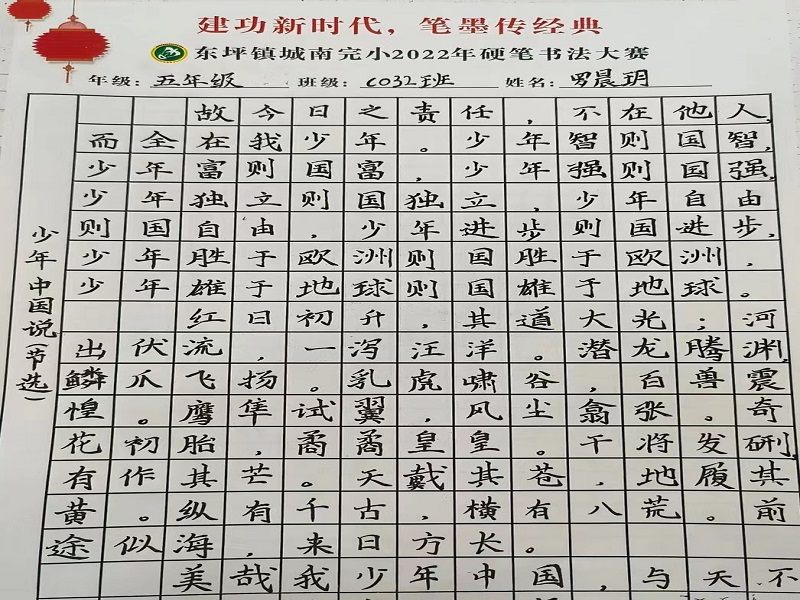 建功新时代，笔墨传经典
东坪镇城南完小2022年硬笔书法大赛
年级：五年级 班级：C032班 姓名：罗晨玥
少年中国说(节选)
故今日之责任，不在他人，
而全在我少年。少年智则国智，
少年富则国富，少年强则国强，
少年独立则国独立，少年自由
则国自由，少年进步则国进步，
少年胜于欧洲则国胜于欧洲，
少年雄于地球则国雄于地球。
红日初升，其道大光；河
出伏流，一泻汪洋。潜龙腾渊，
鳞爪飞扬。乳虎啸谷，百兽震
惶。鹰隼试翼，风尘翕张。奇
花初胎，矞矞皇皇。干将发硎，
有作其芒。天戴其苍，地履其
黄。纵有千古，横有八荒。前
途似海，来日方长。
美哉我少年中国，与天不